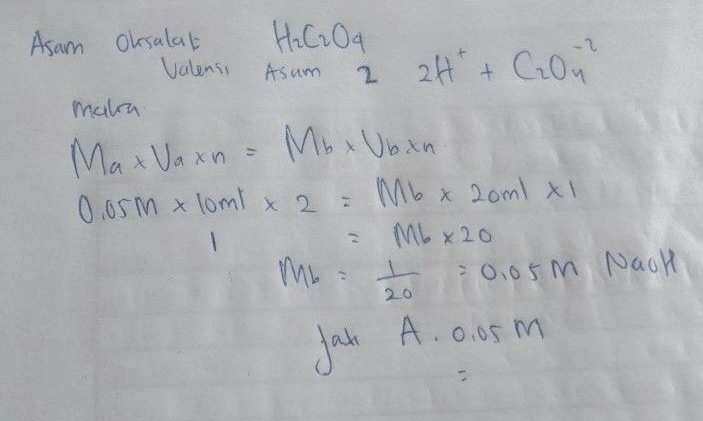 Asam Oksalat H₂C₂O₄
Valensi Asam 2 2H⁺ + C₂O₄⁻²
maka
Ma x Va x n = Mb x Vb x n
0,05M x 10ml x 2 = Mb x 20ml x 1
1 = Mb x 20
Mb = 1/20 = 0,05 M NaOH
jadi A. 0,05 M
=